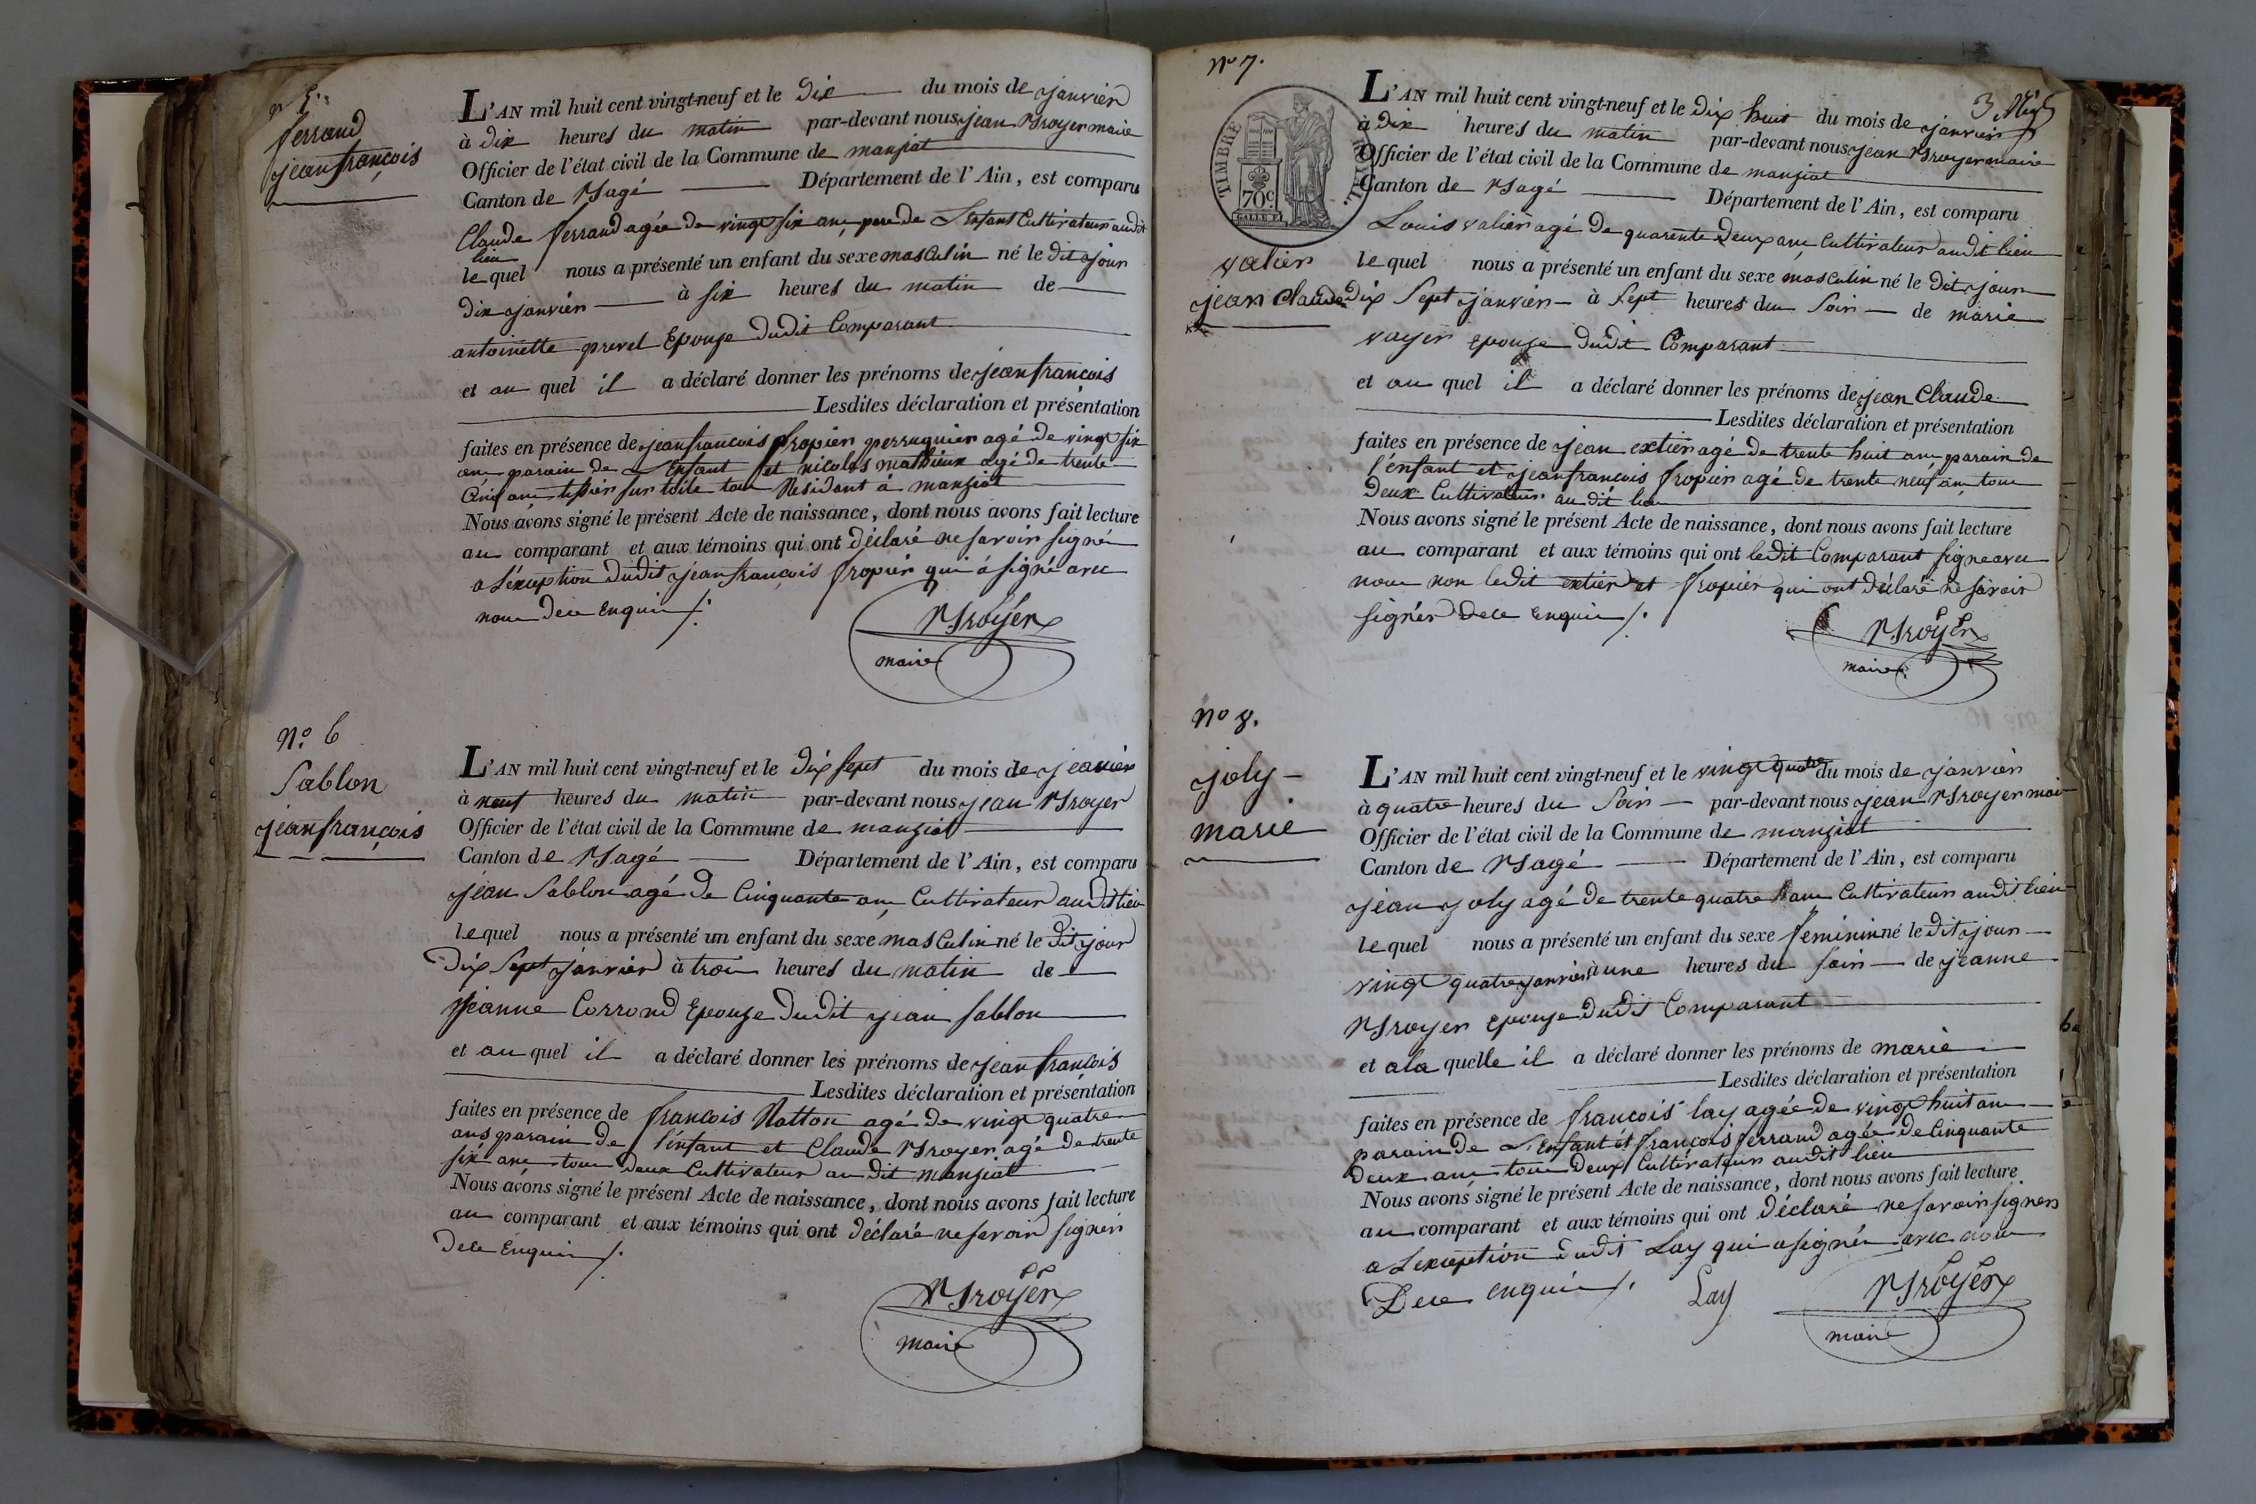 n° 5.
ferrand
jean françois
L'AN mil huit cent vingt-neuf et le Dix du mois de janvier
à dix heures du matin par-devant nous jean Broyer maire
Officier de l'état civil de la Commune de manziat
Canton de Bagé Département de l'Ain, est comparu
Claude ferrand agée de vingt six ans pere de L'Enfant Cultivateur audit
lieu
le quel nous a présenté un enfant du sexe masculin né le dit jour
dix janvier à six heures du matin de
antoinette prevel Epouze dudit Comparant
et au quel il a déclaré donner les prénoms de jean françois
Lesdites déclaration et présentation
faites en présence de jean francois fropier perruquier agé de vingt six
ans parain de L'Enfant et nicolas mathieux agé de trente
Cinq ans tissier sur toile tous Residant à manziat
Nous avons signé le présent Acte de naissance, dont nous avons fait lecture
au comparant et aux témoins qui ont déclaré ne savoir signé
a L'éxception dudit jean françois fropier qui à signé avec
nous de ce Enquis /.
Broyer
maire
N.° 6
Sablon
jean françois
L'AN mil huit cent vingt-neuf et le dix sept du mois de jeavier
à neuf heures du matin par-devant nous jean Broyer
Officier de l'état civil de la Commune de manziat
Canton de Bagé Département de l'Ain, est comparu
jean Sablon agé de Cinquante ans Cultivateur audit lieu
le quel nous a présenté un enfant du sexe masculin né le dit jour
dix Sept janvier à trois heures du matin de
jeanne Corrond Epouze dudit jean Sablon
et au quel il a déclaré donner les prénoms de jean francois
Lesdites déclaration et présentation
faites en présence de francois Natton agé de vingt quatre
ans parain de l'énfant et Claude Broyer agé de trente
six ans tous deux Cultivateur au dit manziat
Nous avons signé le présent Acte de naissance, dont nous avons fait lecture
au comparant et aux témoins qui ont déclaré ne savoir signer
de ce Enquis /.
Broyer
maire
N° 7.
3 
TIMBRE ROYAL.
70c.
valier
jean Claude
L'AN mil huit cent vingt-neuf et le Dix huit du mois de janvier
à dix heures du matin par-devant nous jean Broyer maire
Officier de l'état civil de la Commune de manziat
Canton de Bagé Département de l'Ain, est comparu
Louis valier agé de quarente deux ans Cultivateur audit lieu
le quel nous a présenté un enfant du sexe masculin né le dit jour
dix Sept janvier à Sept heures du Soir de marie
voyer epouze dudit Comparant
et au quel il a déclaré donner les prénoms de jean Claude
Lesdites déclaration et présentation
faites en présence de jean extier agé de trente huit ans parain de
l'énfant et jean francois fropier agé de trente neuf ans tous
deux Cultivateur au dit lieu
Nous avons signé le présent Acte de naissance, dont nous avons fait lecture
au comparant et aux témoins qui ont ledit Comparant signe avec
nous non ledit extier et fropier qui ont déclaré ne savoir
signér de ce Enquis /.
Broyer
maire
N° 8.
joly
marie
L'AN mil huit cent vingt-neuf et le vingt quatre du mois de janvier
à quatre heures du Soir par-devant nous jean Broyer mair
Officier de l'état civil de la Commune de manziat
Canton de Bagé Département de l'Ain, est comparu
jean joly agé de trente quatre ans Cultivateur audit lieu
le quel nous a présenté un enfant du sexe feminin né le dit jour
vingt quatre janvier à une heures du soir de jeanne
Broyer epouze dudit Comparant
et a la quelle il a déclaré donner les prénoms de marie
Lesdites déclaration et présentation
faites en présence de francois lay agée de vingt huit ans
parain de L'Enfant et francois ferrand agée de Cinquante
deux ans tous deux Cultivateur audit lieu
Nous avons signé le présent Acte de naissance, dont nous avons fait lecture
au comparant et aux témoins qui ont déclaré ne savoir signer
a L'exception dudit Lay qui a signér avec nous
De ce enquis /.
Lay
Broyer
maire